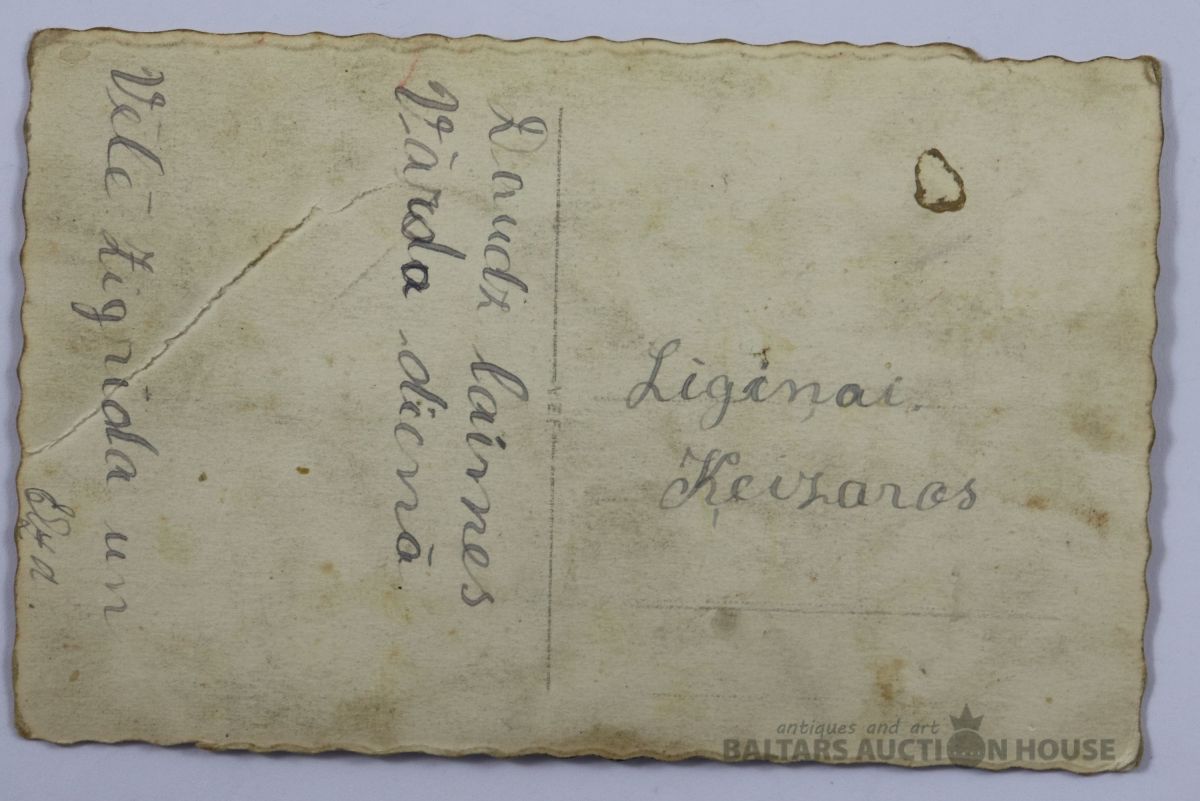 Daudz laimes
Vārda dienā
Vēlē Zigrida un
Ligiņai.
Ķeizaros
VEF
antiques and art
BALTARS AUCTION HOUSE